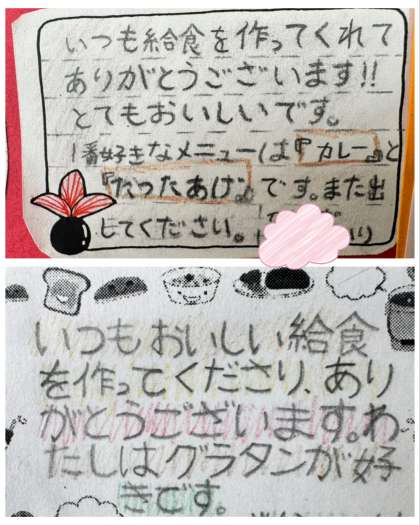 いつも給食を作ってくれて
ありがとうございます!!
とてもおいしいです。
1番好きなメニューは『カレー』と
『たつたあげ』です。また出
してください。
いつもおいしい給食
を作ってくださり、あり
がとうございます。わ
たしはグラタンが好
きです。